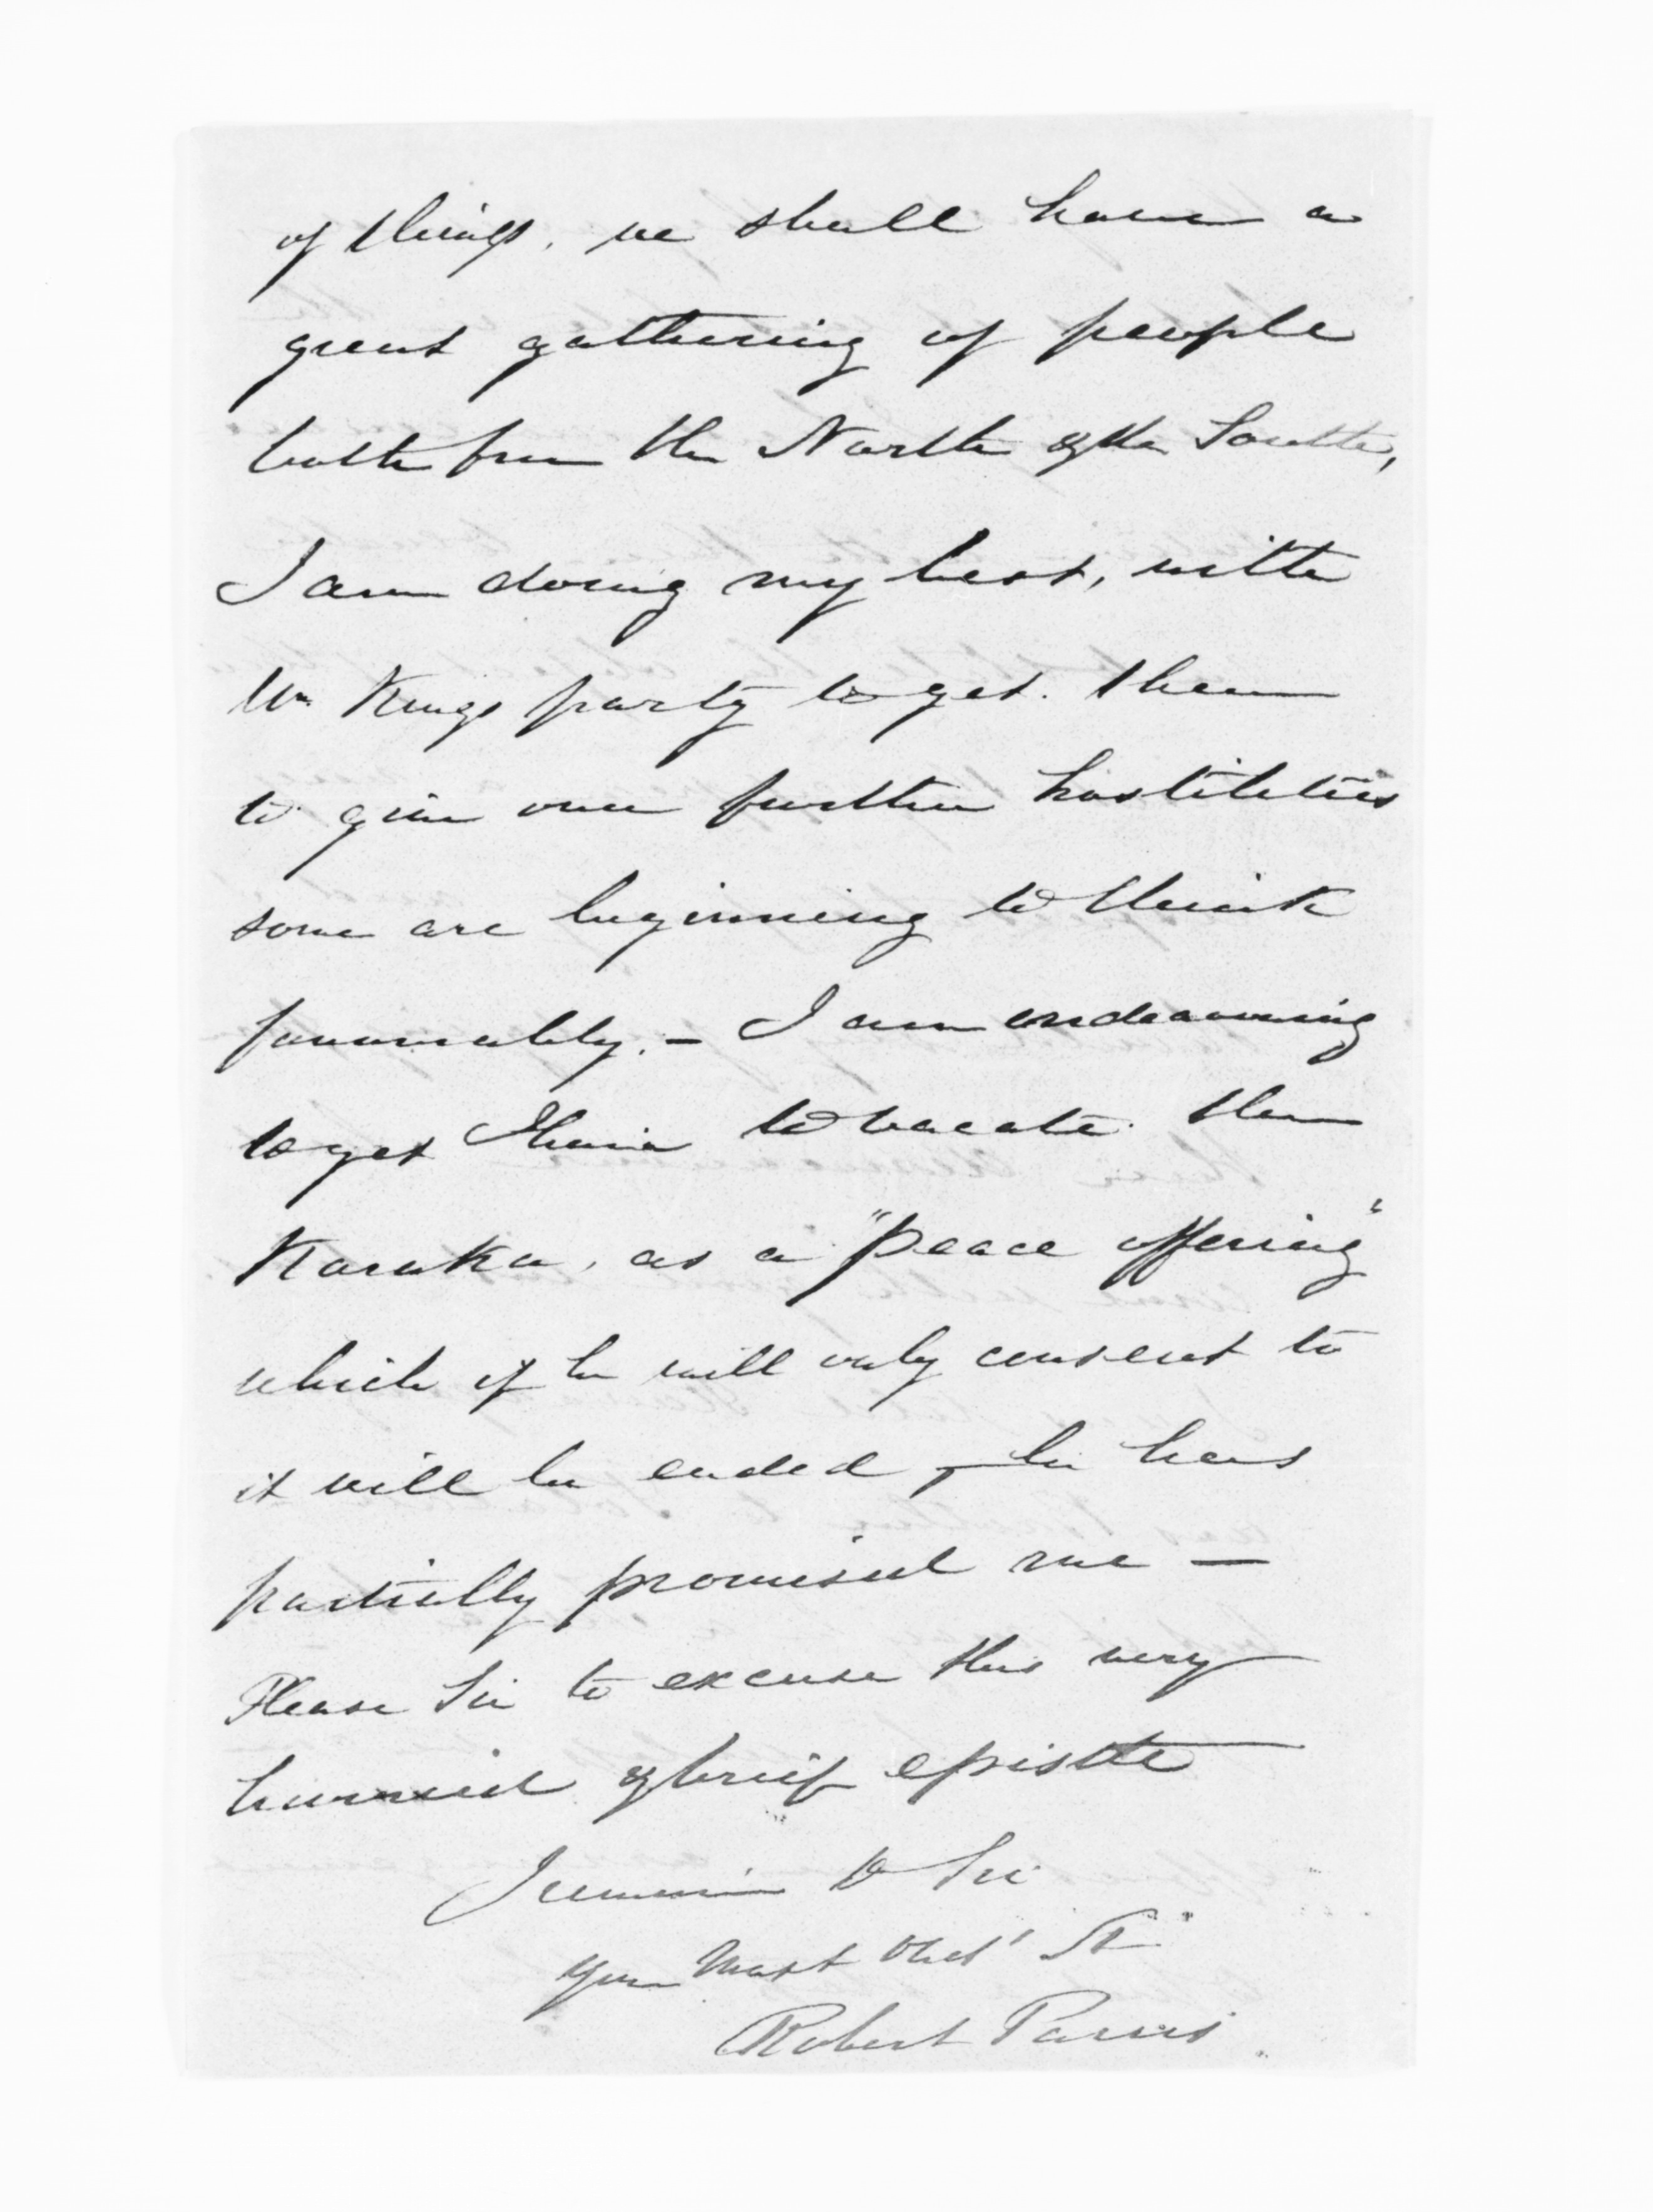 of things, we shall have a
great gathering of people
both from the North & the South,
I am doing my best, with
Wm Kings party to get them
to give over further hostilities
some are beginning to think
favourably. — I am endeavouring
to get Ihaia to vacate the
Karaka, as a "peace offering"
which if he will only consent to
it will be ended, — he has
partially promised me —
Please Sir to excuse this very
hurried & brief epistle
I remain D Sir
Your Most Obedt St
Robert Parris